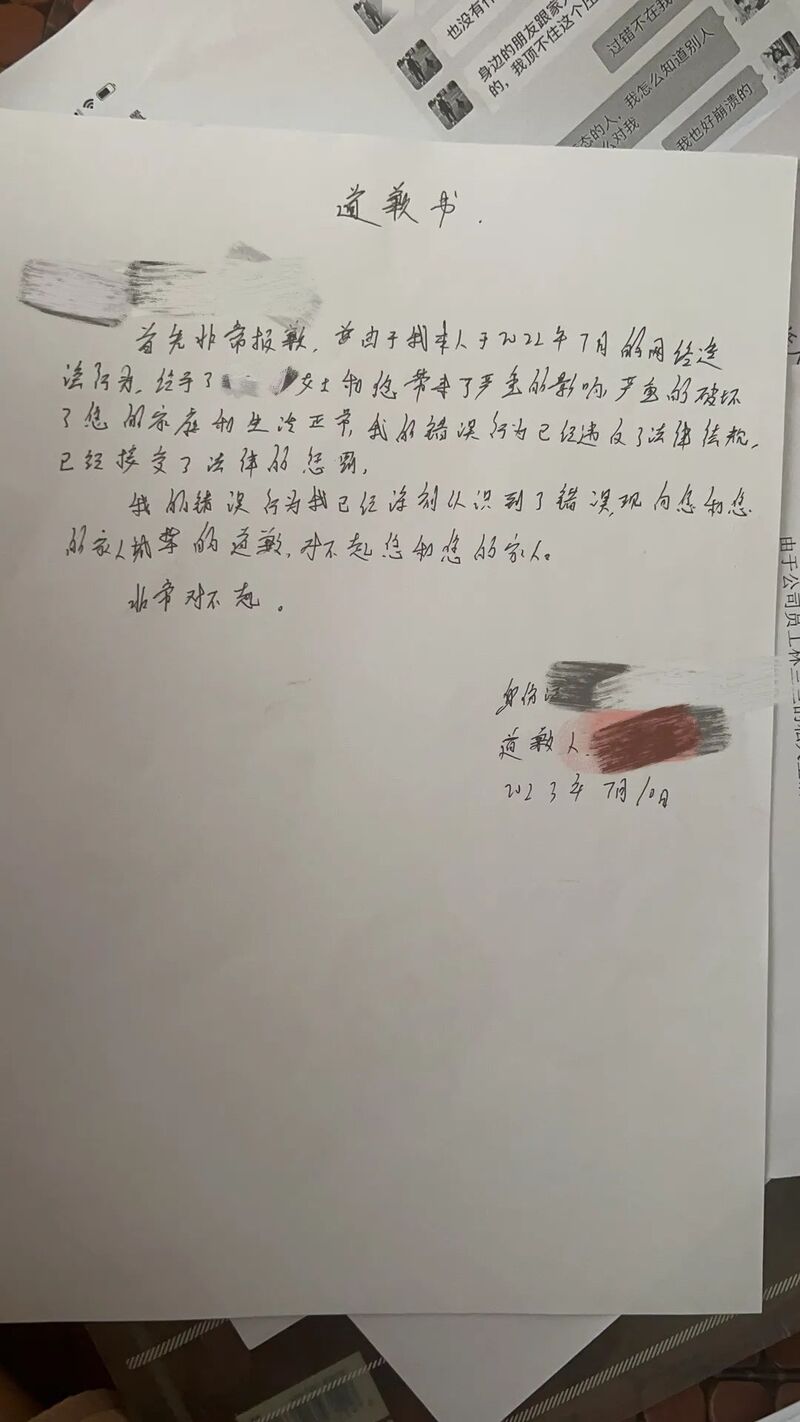 也没有
身边的朋友跟家
的，我顶不住这个
过错不在我
态的人，我怎么知道别人
么对我
我也好崩溃的
道歉书.
首先非常报歉，由于我本人于2022年7月的网络违
法行为，给予了 女士和您带来了严重的影响，严重的破坏
了您的家庭和生活正常，我的错误行为已经违反了法律法规，
已经接受了法律的惩罚，
我的错误行为我已经深刻认识到了错误，现向您和您
的家人诚挚的道歉，对不起您和您的家人。
非常对不起。
身份证
道歉人.
2023年7月10日
由于公司员工林三三的